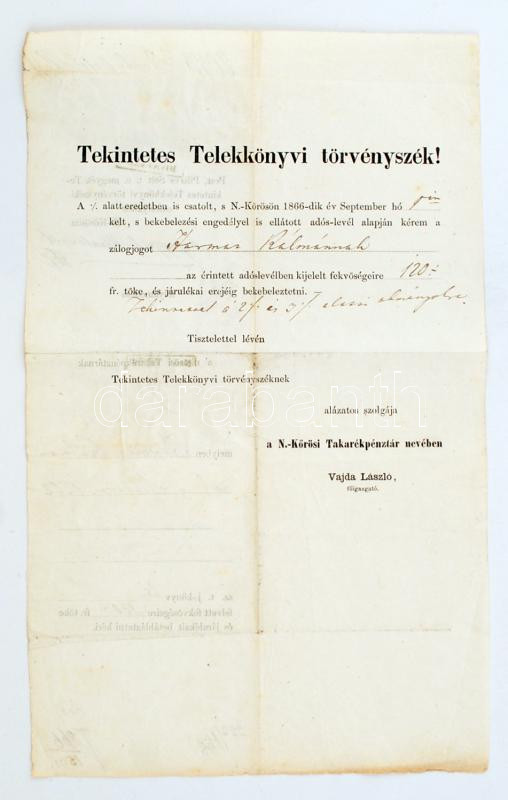 Tekintetes Telekkönyvi törvényszék!
A ⁒ alatt eredetben is csatolt, s N.-Körösön 1866-dik év September hó
kelt, s bekebelezési engedélyel is ellátott adós-levél alapján kérem a
zálogjogot Harmat Kálmánnak
az érintett adóslevélben kijelelt fekvőségeire 120
fr. töke, és járulékai erejéig bekebeleztetni.
Tisztelettel lévén
Tekintetes Telekkönyvi törvényszéknek
alázatos szolgája
a N.-Körösi Takarékpénztár nevében
Vajda László,
főigazgató.
darabanth